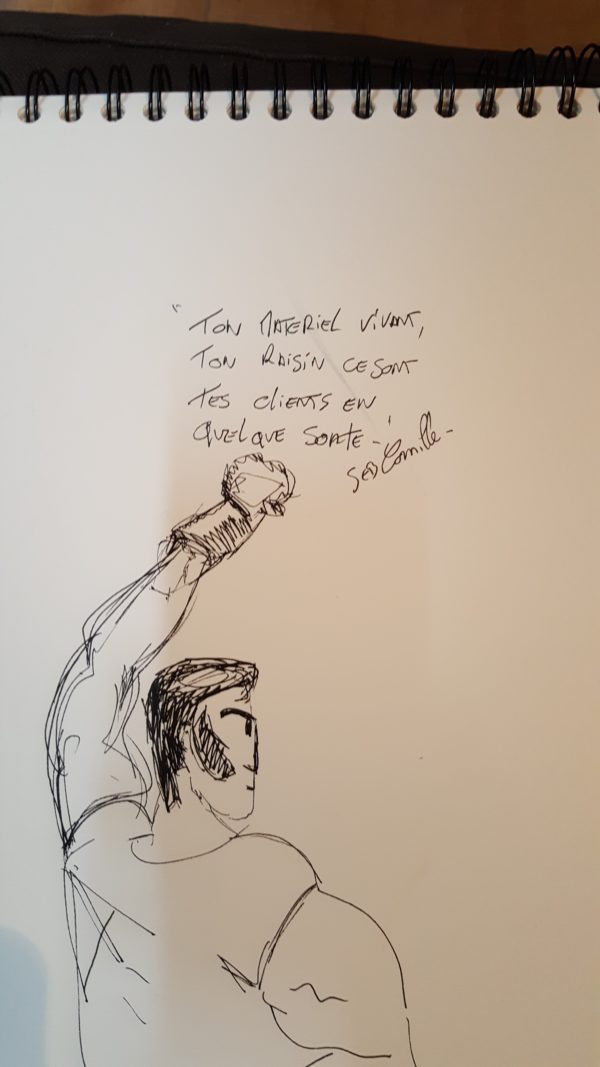 "TON MATERIEL VIVANT,
TON RAISIN CE SONT
TES CLIENTS EN
QUELQUE SORTE-"
Camille-